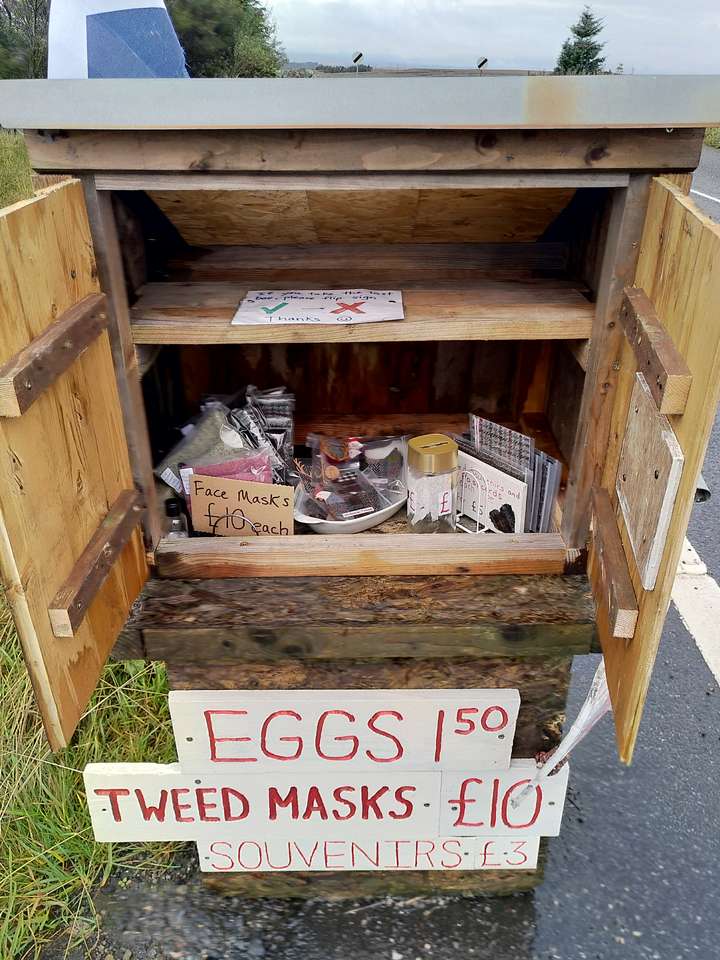 If you take the last
box, please flip sign
✓ → ✗
Thanks ☺
Face Masks
£10 each
£ £
and
£5
EGGS 1.50
TWEED MASKS · £10
SOUVENIRS · £3